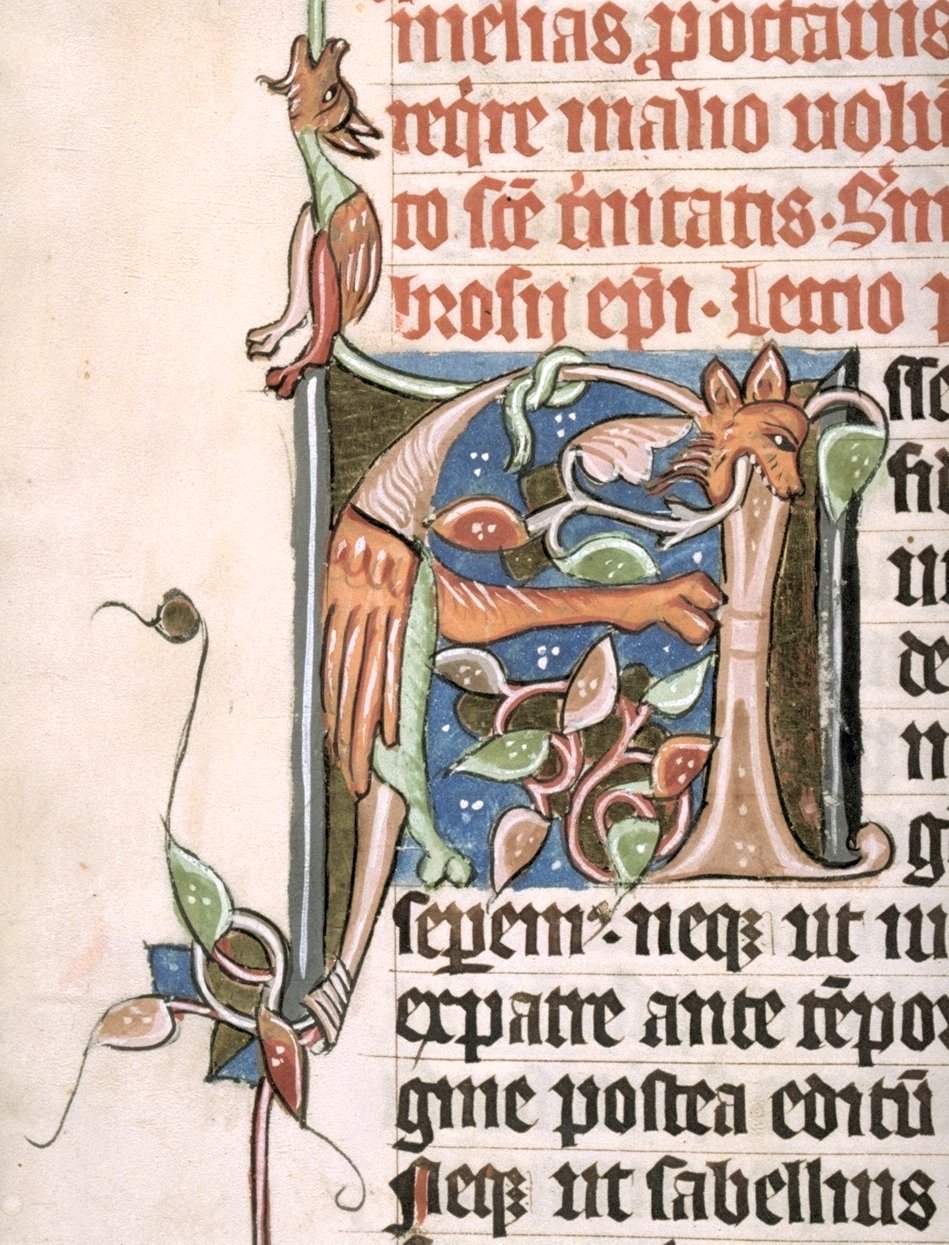 melias poctauis
reqͥre malio uolu
to sc̄e tͥnitatis · Sͥm
brosij ep̄i · Lectio
A
sse
fil
de
sep̱em · neqꝫ ut in
ex patre ante tēpo
gine postea editū
Neqꝫ ut sabellius